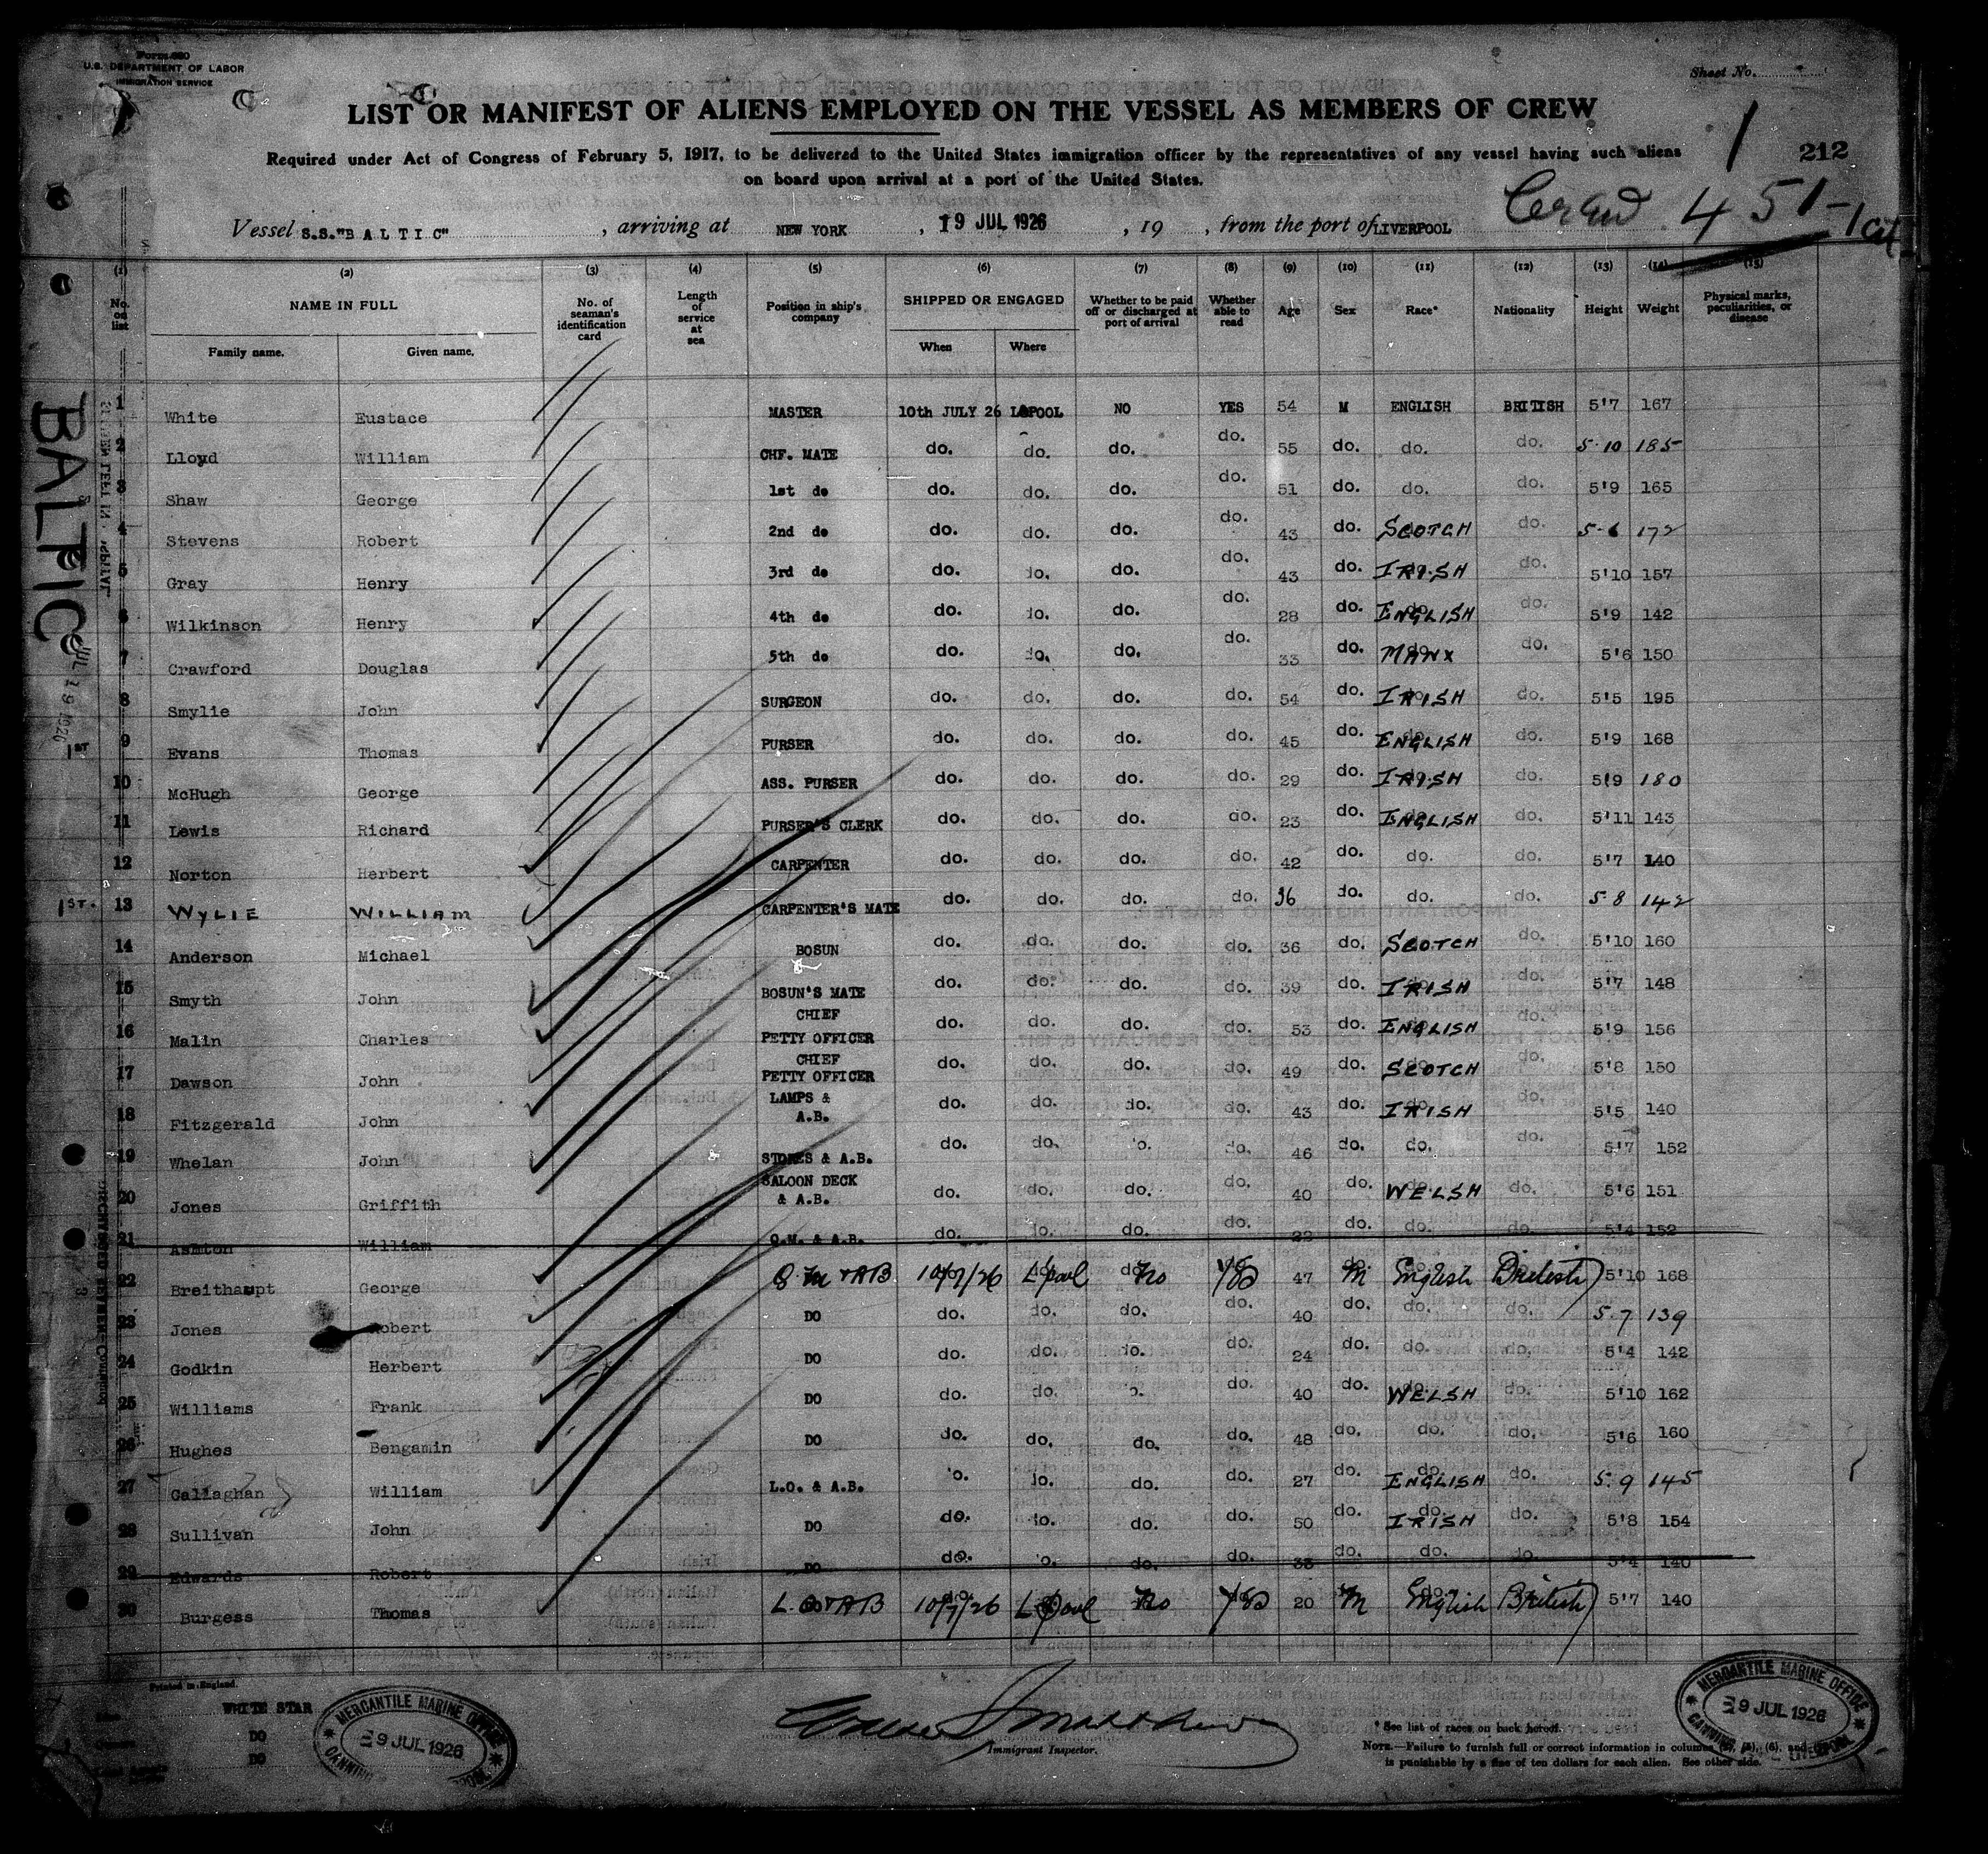 Form 680
U.S. DEPARTMENT OF LABOR
IMMIGRATION SERVICE
Sheet No.
LIST OR MANIFEST OF ALIENS EMPLOYED ON THE VESSEL AS MEMBERS OF CREW
Required under Act of Congress of February 5, 1917, to be delivered to the United States immigration officer by the representatives of any vessel having such aliens
on board upon arrival at a port of the United States.
1 212
Crew 451-1
Vessel S.S."BALTIC", arriving at NEW YORK, 19 JUL 1926, 19 , from the port of LIVERPOOL
(1) (2) (3) (4) (5) (6) (7) (8) (9) (10) (11) (12) (13) (14) (15)
No. on list NAME IN FULL Family name. Given name. No. of seaman's identification card Length of service at sea Position in ship's company SHIPPED OR ENGAGED When Where Whether to be paid off or discharged at port of arrival Whether able to read Age Sex Race* Nationality Height Weight Physical marks, peculiarities, or disease
1 White Eustace MASTER 10th JULY 26 L'POOL NO YES 54 M ENGLISH BRITISH 5'7 167
2 Lloyd William CHF. MATE do. do. do. do. 55 do. do. do. 5·10 185
3 Shaw George 1st do do. do. do. do. 51 do. do. do. 5'9 165
4 Stevens Robert 2nd do do. do. do. do. 43 do. SCOTCH do. 5-6 172
5 Gray Henry 3rd do do. do. do. do. 43 do. IRISH do. 5'10 157
6 Wilkinson Henry 4th do do. do. do. do. 28 do. ENGLISH do. 5'9 142
7 Crawford Douglas 5th do do. do. do. do. 33 do. MANX do. 5'6 150
8 Smylie John SURGEON do. do. do. do. 54 do. IRISH do. 5'5 195
9 Evans Thomas PURSER do. do. do. do. 45 do. ENGLISH do. 5'9 168
10 McHugh George ASS. PURSER do. do. do. do. 29 do. IRISH do. 5'9 180
11 Lewis Richard PURSER'S CLERK do. do. do. do. 23 do. ENGLISH do. 5'11 143
12 Norton Herbert CARPENTER do. do. do. do. 42 do. do. do. 5'7 140
1ST. 13 WYLIE WILLIAM CARPENTER'S MATE do. do. do. do. 36 do. do. do. 5·8 142
14 Anderson Michael BOSUN do. do. do. do. 36 do. SCOTCH do. 5'10 160
15 Smyth John BOSUN'S MATE do. do. do. do. 39 do. IRISH do. 5'7 148
16 Malin Charles CHIEF PETTY OFFICER do. do. do. do. 53 do. ENGLISH do. 5'9 156
17 Dawson John CHIEF PETTY OFFICER do. do. do. do. 49 do. SCOTCH do. 5'8 150
18 Fitzgerald John LAMPS & A.B. do. do. do. do. 43 do. IRISH do. 5'5 140
19 Whelan John STORES & A.B. do. do. do. do. 46 do. do. do. 5'7 152
20 Jones Griffith SALOON DECK & A.B. do. do. do. do. 40 do. WELSH do. 5'6 151
21 Ashton William Q.M. & A.B. do. do. do. do. 22 do. do. do. 5'4 152
22 Breithaupt George Q.M + AB 10/7/26 L'pool No Yes 47 M English British 5'10 168
23 Jones Robert DO do. do. do. do. 40 do. do. do. 5·7 139
24 Godkin Herbert DO do. do. do. do. 24 do. do. do. 5'4 142
25 Williams Frank DO do. do. do. do. 40 do. WELSH do. 5'10 162
26 Hughes Bengamin DO do. do. do. do. 48 do. do. do. 5'6 160
27 Callaghan William L.O. & A.B. do. do. do. do. 27 do. ENGLISH do. 5·9 145
28 Sullivan John DO do. do. do. do. 50 do. IRISH do. 5'8 154
29 Edwards Robert DO do. do. do. do. 33 do. do. do. 5'4 140
30 Burgess Thomas L.O + AB 10/7/26 L'pool No Yes 20 M English British 5'7 140
BALTIC
JUL 19 1926
1ST
Printed in England.
WHITE STAR
DO
DO
MERCANTILE MARINE OFFICE
9 JUL 1926
CANNING
Immigrant Inspector.
* See list of races on back hereof.
NOTE.—Failure to furnish full or correct information in columns (5), (6), and
is punishable by a fine of ten dollars for each alien. See other side.
MERCANTILE MARINE OFFICE
9 JUL 1926
CANNING